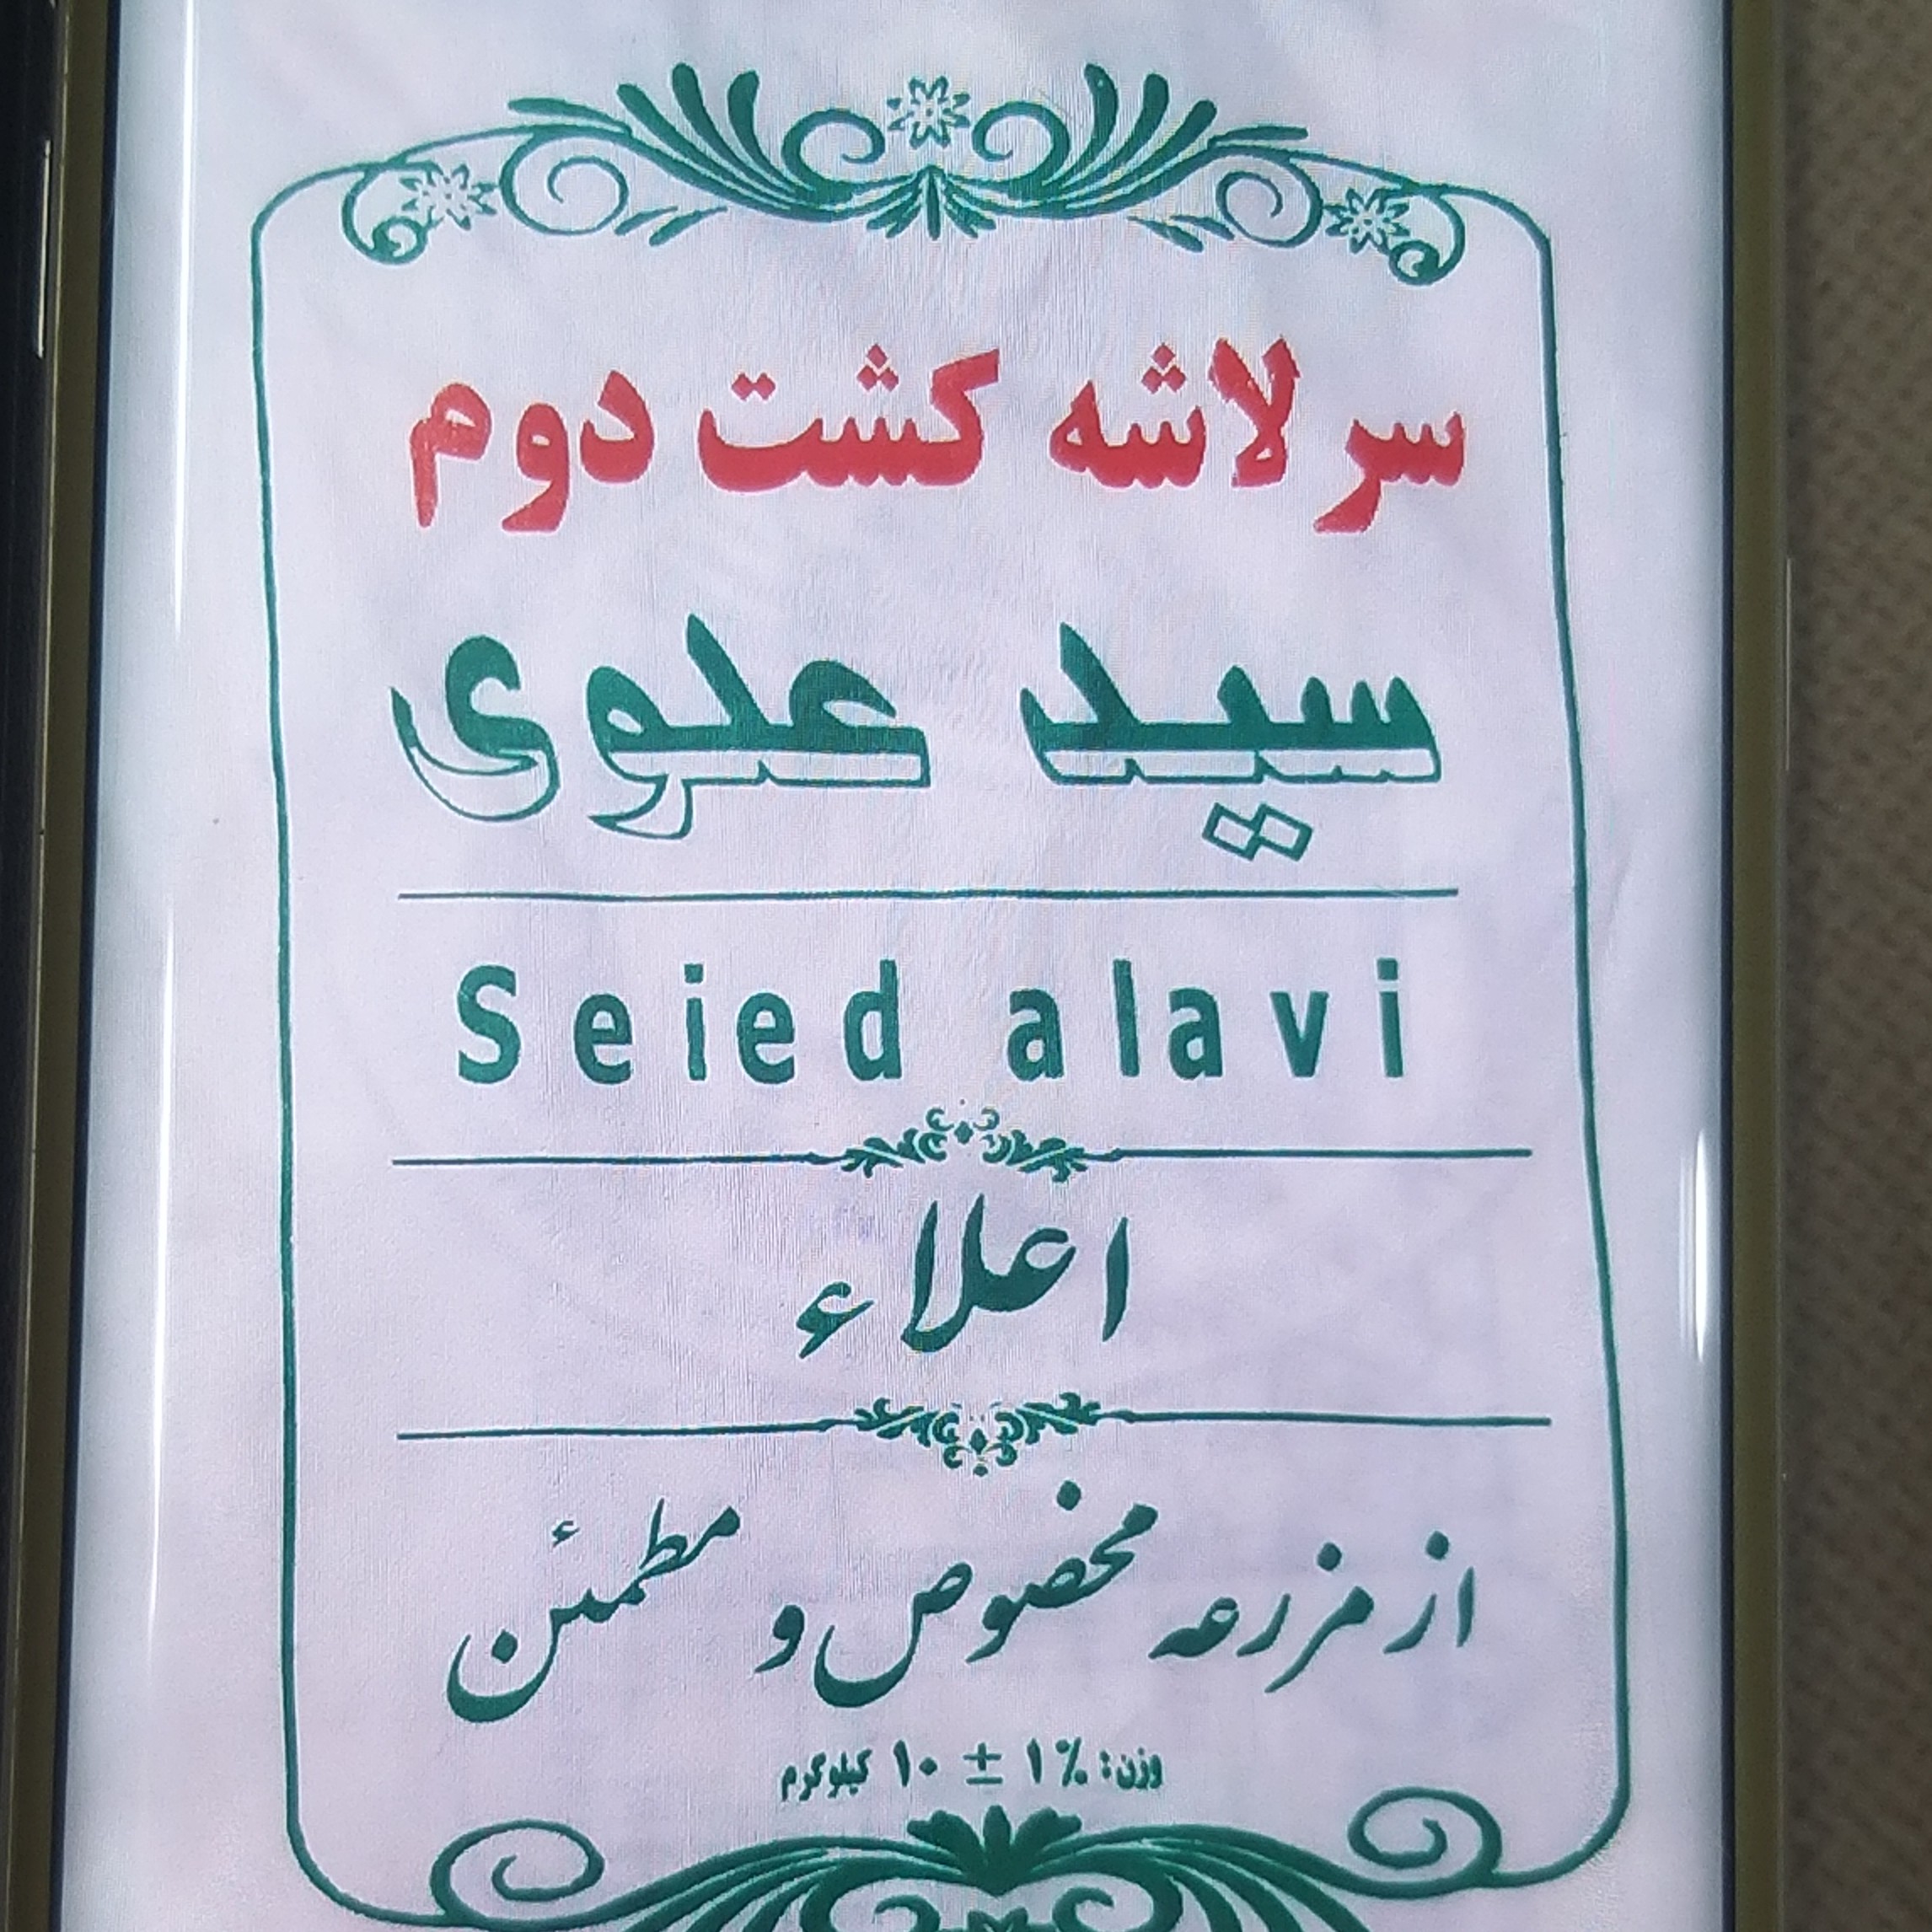 سر لاشه کشت دوم
سید علوی
Seied alavi
اعلاء
از مزرعه مخصوص و مطمئن
وزن: ۱% ± ۱۰ کیلوگرم